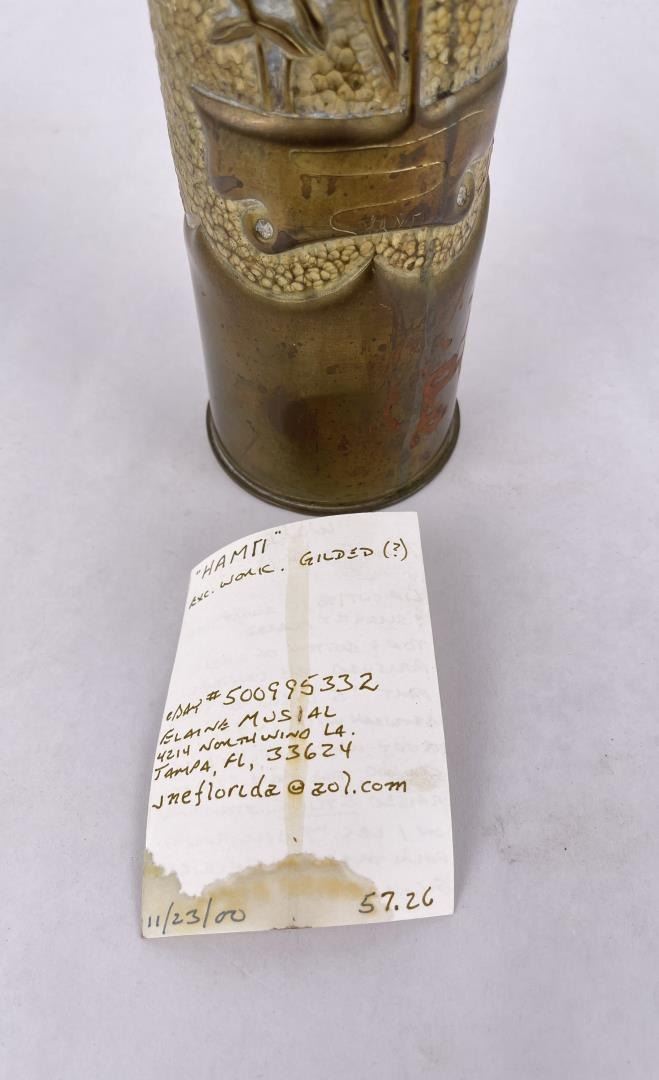 "HAMП"
EXC. WORK. GILDED (?)
eBAY #500995332
ELAINE MUSIAL
4214 NORTHWIND LA.
TAMPA, FL, 33624
jneflorida@aol.com
11/23/00
57.26